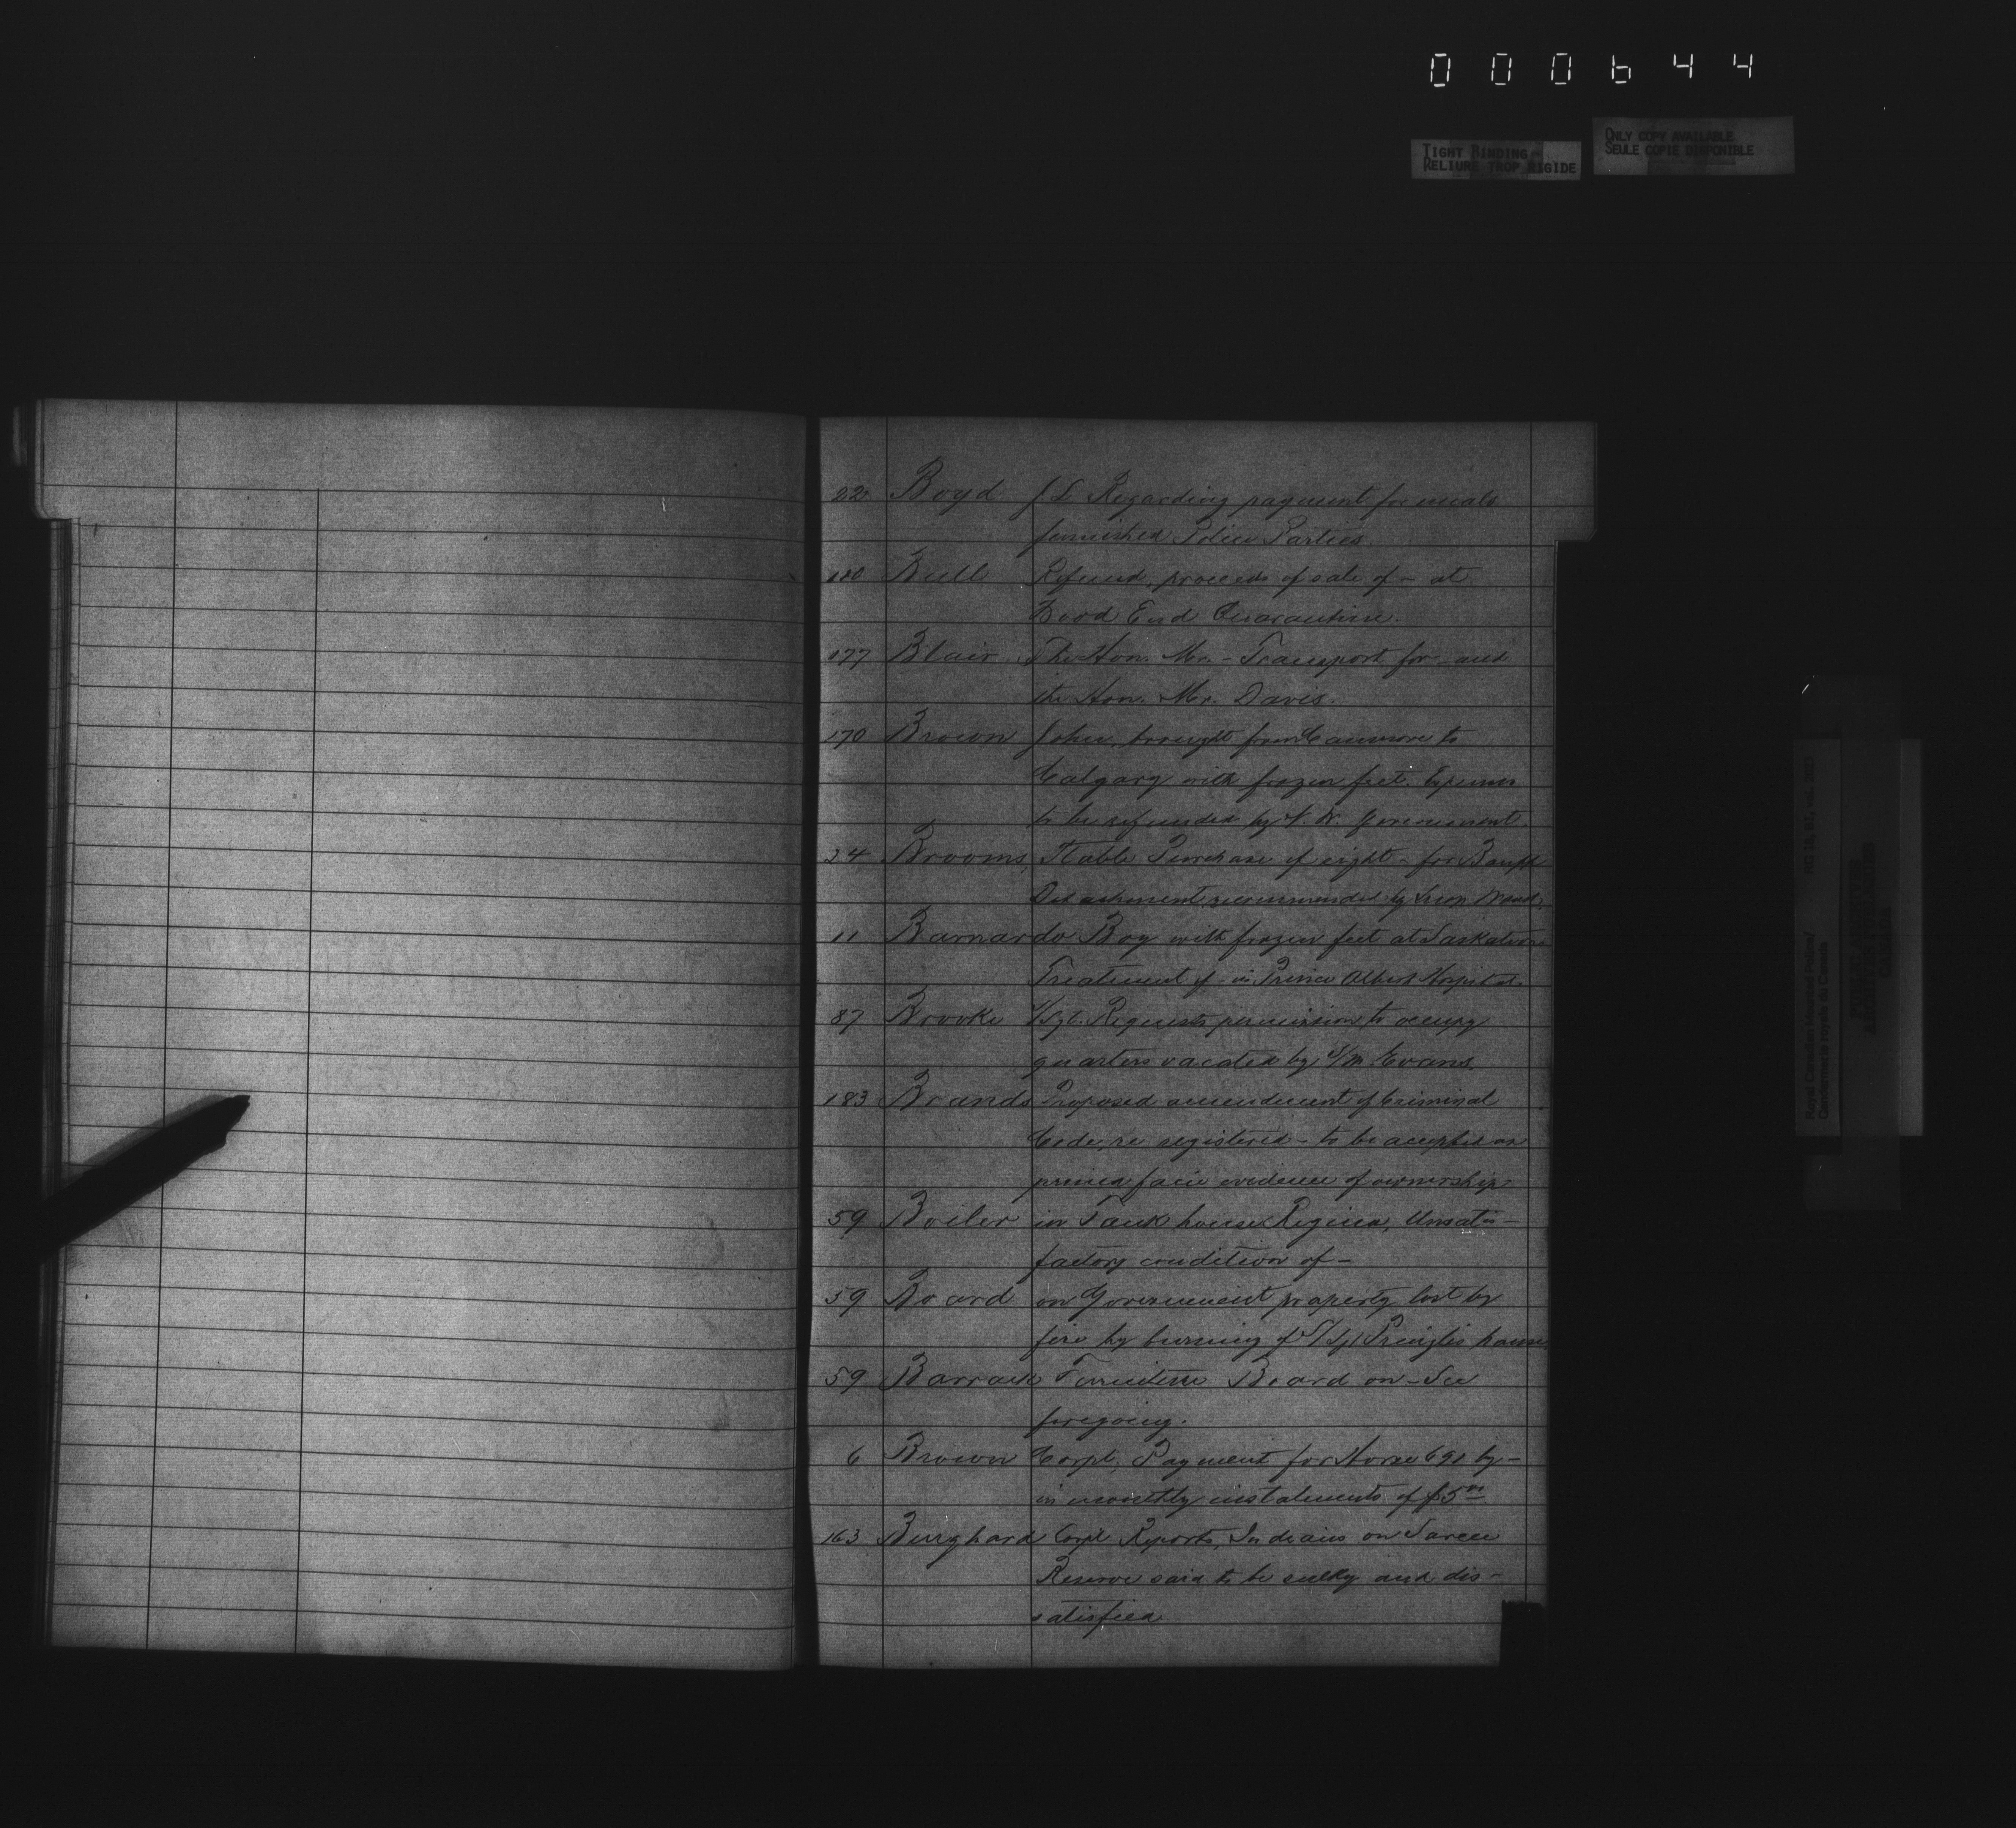 000644
TIGHT BINDING
RELIURE TROP RIGIDE
ONLY COPY AVAILABLE
SEULE COPIE DISPONIBLE
22 Boyd J. L. Regarding payment for meals
furnished Police Parties.
180 Bull Refund, proceeds of sale of - at
Wood End Quarantine.
177 Blair The Hon. Mr. - Transport for - and
the Hon. Mr. Davis.
170 Brown John, brought from Canmore to
Calgary with frozen feet. Expenses
to be refunded by N. W. Government.
24 Brooms, Stable Purchase of eight - for Banff
Detachment recommended by Insp. Wood.
11 Barnardo Boy with frozen feet at Saskatoon
Treatment of - in Prince Albert Hospital.
87 Brooke S/Sgt. Requests permission to occupy
quarters vacated by S/M. Evans.
183 Brands Proposed amendment of Criminal
Code, re registered - to be accepted as
prima facie evidence of ownership.
59 Boiler in Tank house Regina, Unsatis-
factory condition of -
59 Board on Government property lost by
fire by burning of S/Sgt Pringles house.
59 Barrack Furniture Board on - See
foregoing.
6 Brown Corpl, Payment for Horse 691 by -
in monthly instalments of $5.00
163 Burghard Corpl Reports, Indians on Sarcee
Reserve said to be sulky and dis-
satisfied
Royal Canadian Mounted Police/
Gendarmerie royale du Canada
PUBLIC ARCHIVES
ARCHIVES PUBLIQUES
CANADA